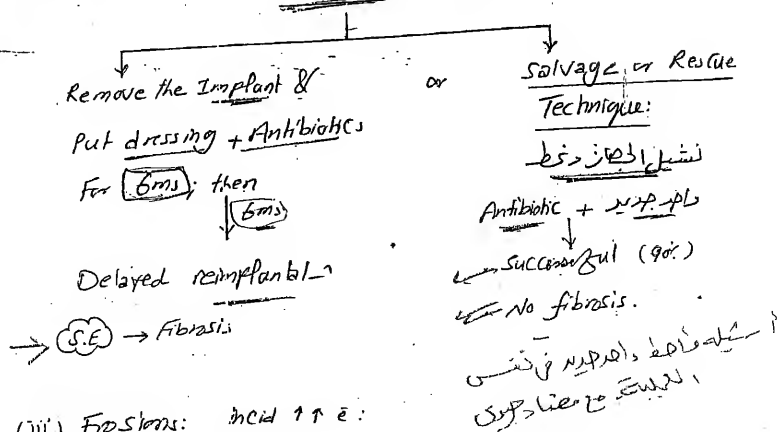 Remove the Implant &
Put dressing + Antibiotics
For 6ms; then
6ms
Delayed reimplant
S.E → Fibrosis
or
Salvage or Rescue
Technique:
نشيل الجهاز ونحط
واحد جديد + Antibiotic
Successful (90%)
No fibrosis.
أشيله وأحط واحد جديد في نفس
العملية مع مضاد حيوي
(iii) Erosions: incid ↑↑ ē: